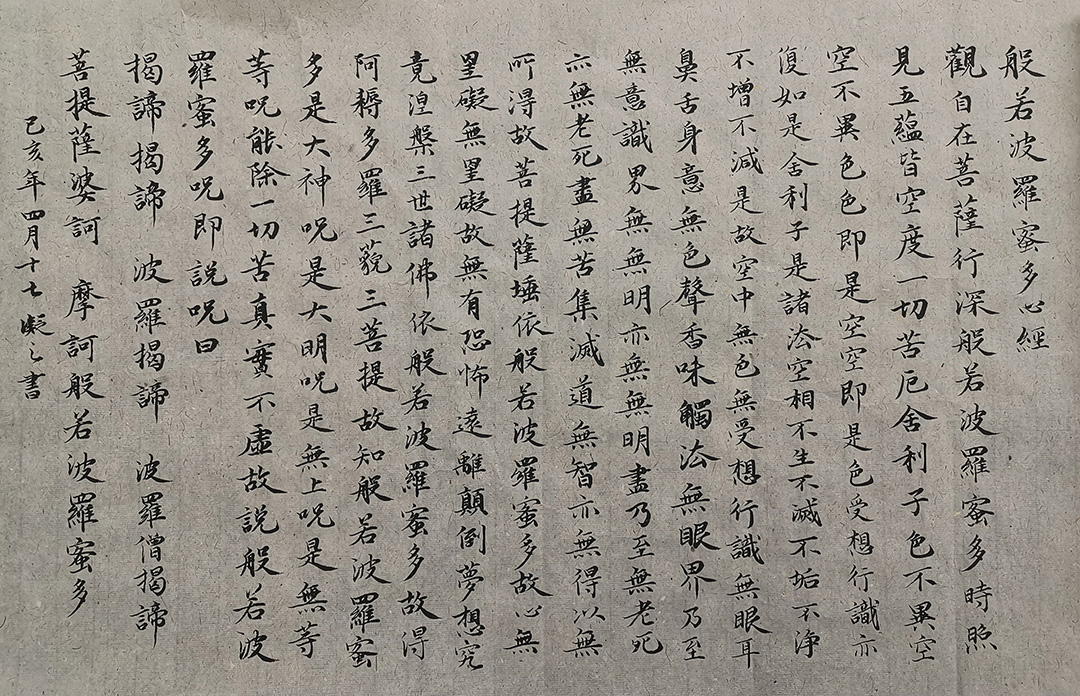 般若波羅蜜多心經
觀自在菩薩行深般若波羅蜜多時照
見五蘊皆空度一切苦厄舍利子色不異空
空不異色色即是空空即是色受想行識亦
復如是舍利子是諸法空相不生不滅不垢不淨
不增不減是故空中無色無受想行識無眼耳
鼻舌身意無色聲香味觸法無眼界乃至
無意識界無無明亦無無明盡乃至無老死
亦無老死盡無苦集滅道無智亦無得以無
所得故菩提薩埵依般若波羅蜜多故心無
罣礙無罣礙故無有恐怖遠離顛倒夢想究
竟涅槃三世諸佛依般若波羅蜜多故得
阿耨多羅三藐三菩提故知般若波羅蜜
多是大神呪是大明呪是無上呪是無等
等呪能除一切苦真實不虛故説般若波
羅蜜多呪即説呪曰
揭諦揭諦 波羅揭諦 波羅僧揭諦
菩提薩婆訶 摩訶般若波羅蜜多
己亥年四月十七凝之書